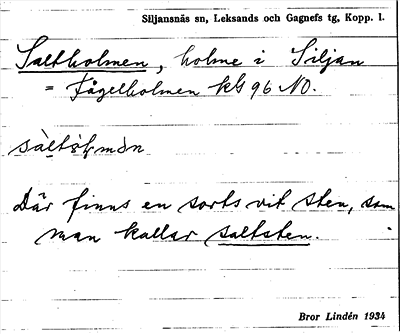 Siljansnäs sn, Leksands och Gagnefs tg, Kopp. l.
Saltholmen, holme i Siljan
= Fågelholmen kbl 96 NO.
Där finns en sorts vit sten, som
man kallar saltsten.
Bror Lindén 1934